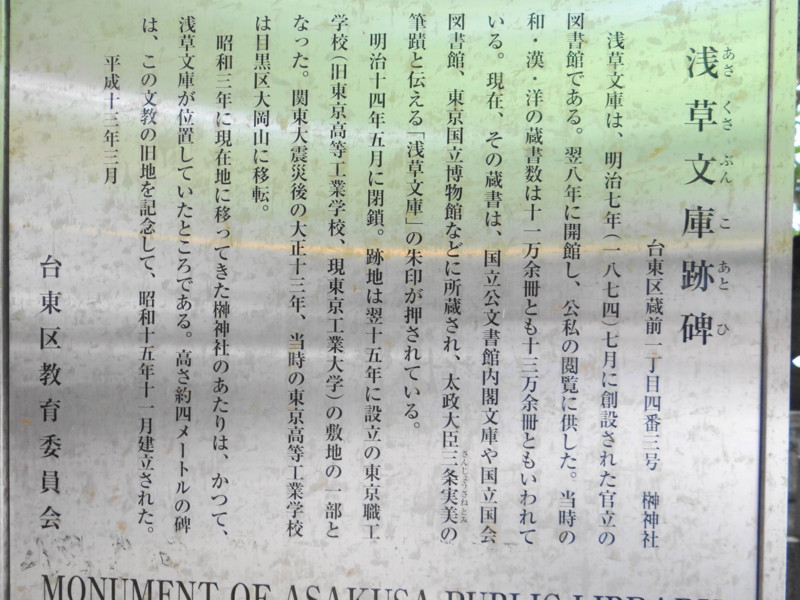 浅草文庫跡碑
あさくさぶんこあとひ
台東区蔵前一丁目四番三号　榊神社
浅草文庫は、明治七年(一八七四)七月に創設された官立の
図書館である。翌八年に開館し、公私の閲覧に供した。当時の
和・漢・洋の蔵書数は十一万余冊とも十三万余冊ともいわれて
いる。現在、その蔵書は、国立公文書館内閣文庫や国立国会
図書館、東京国立博物館などに所蔵され、太政大臣三条実美の
さんじょうさねとみ
筆蹟と伝える「浅草文庫」の朱印が押されている。
明治十四年五月に閉鎖。跡地は翌十五年に設立の東京職工
学校(旧東京高等工業学校、現東京工業大学)の敷地の一部と
なった。関東大震災後の大正十三年、当時の東京高等工業学校
は目黒区大岡山に移転。
昭和三年に現在地に移ってきた榊神社のあたりは、かつて、
浅草文庫が位置していたところである。高さ約四メートルの碑
は、この文教の旧地を記念して、昭和十五年十一月建立された。
平成十三年三月
台東区教育委員会
MONUMENT OF ASAKUSA PUBLIC LIBRARY